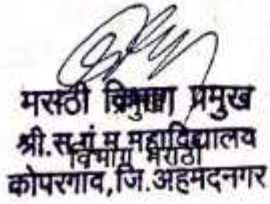 मराठी विभाग प्रमुख
श्री.स.गं.म.महाविद्यालय
विभाग मराठी
कोपरगाव,जि.अहमदनगर